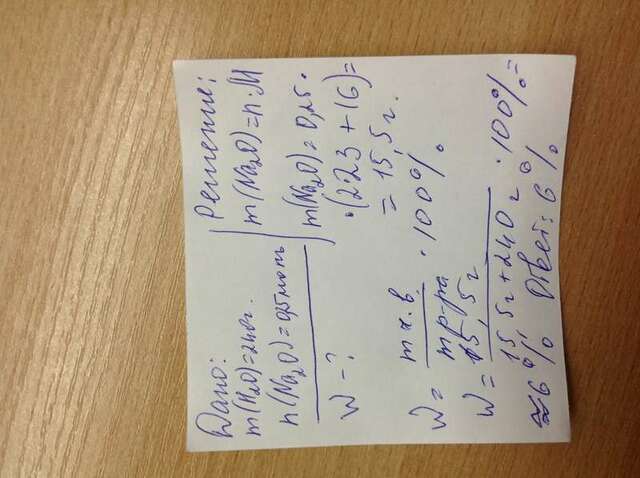 Дано:
m(H₂O)=240г.
n(Na₂O)=0,25моль
W-?
Решение:
m(Na₂O)=n·M
m(Na₂O)=0,25·
·(2·23+16)=
=15,5г.
W= mх.в. / mр-ра · 100%
W= 15,5г / 15,5г+240г · 100%=
≈6% Ответ: 6%